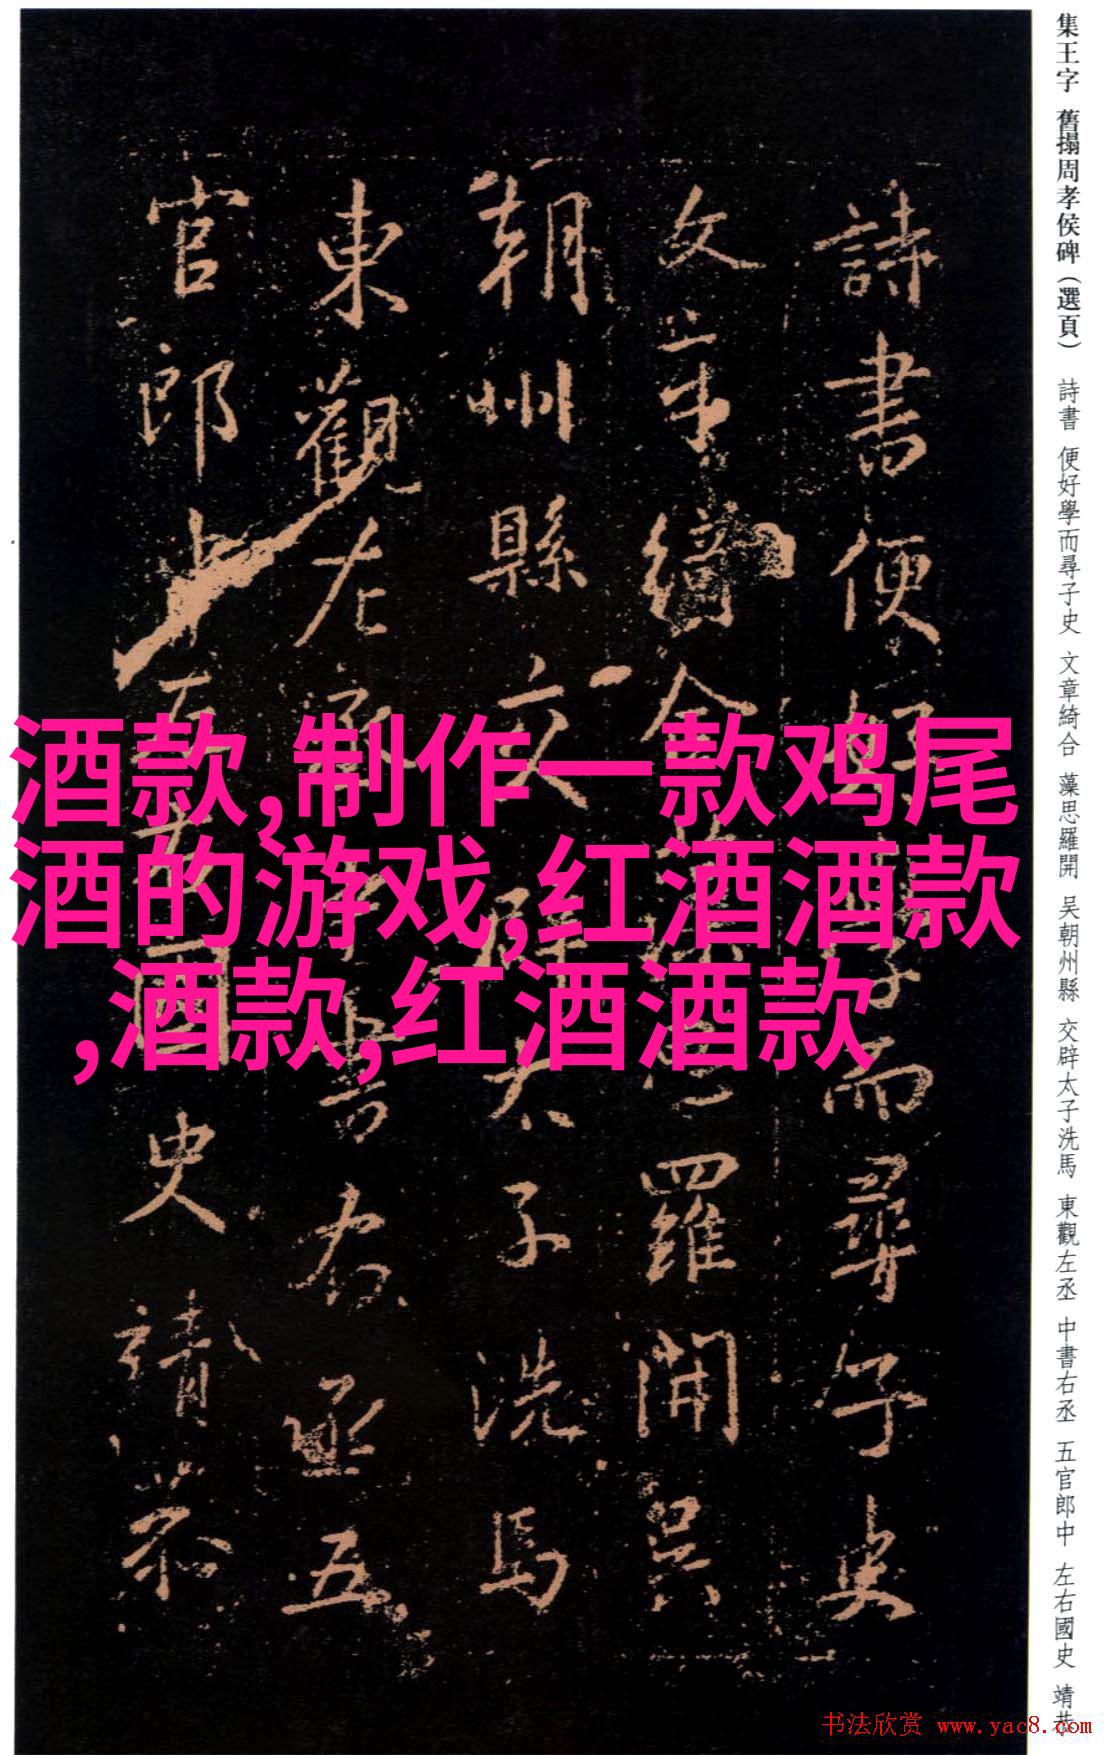 集王字 舊搨周孝侯碑(選頁) 詩書 便好學而尋子史 文章綺合 藻思羅開 吴朝州縣 交辟太子洗馬 東觀左丞 中書右丞 五官郎中 左右國史 靖恭
詩書便好學而尋子史
文章綺合藻思羅開吴
朝州縣交辟太子洗馬
東觀左丞中書右丞五
官郎中左右國史靖恭
酒款,制作一款鸡尾
酒的游戏,红酒酒款
,酒款,红酒酒款
书法欣赏 www.yac8.com